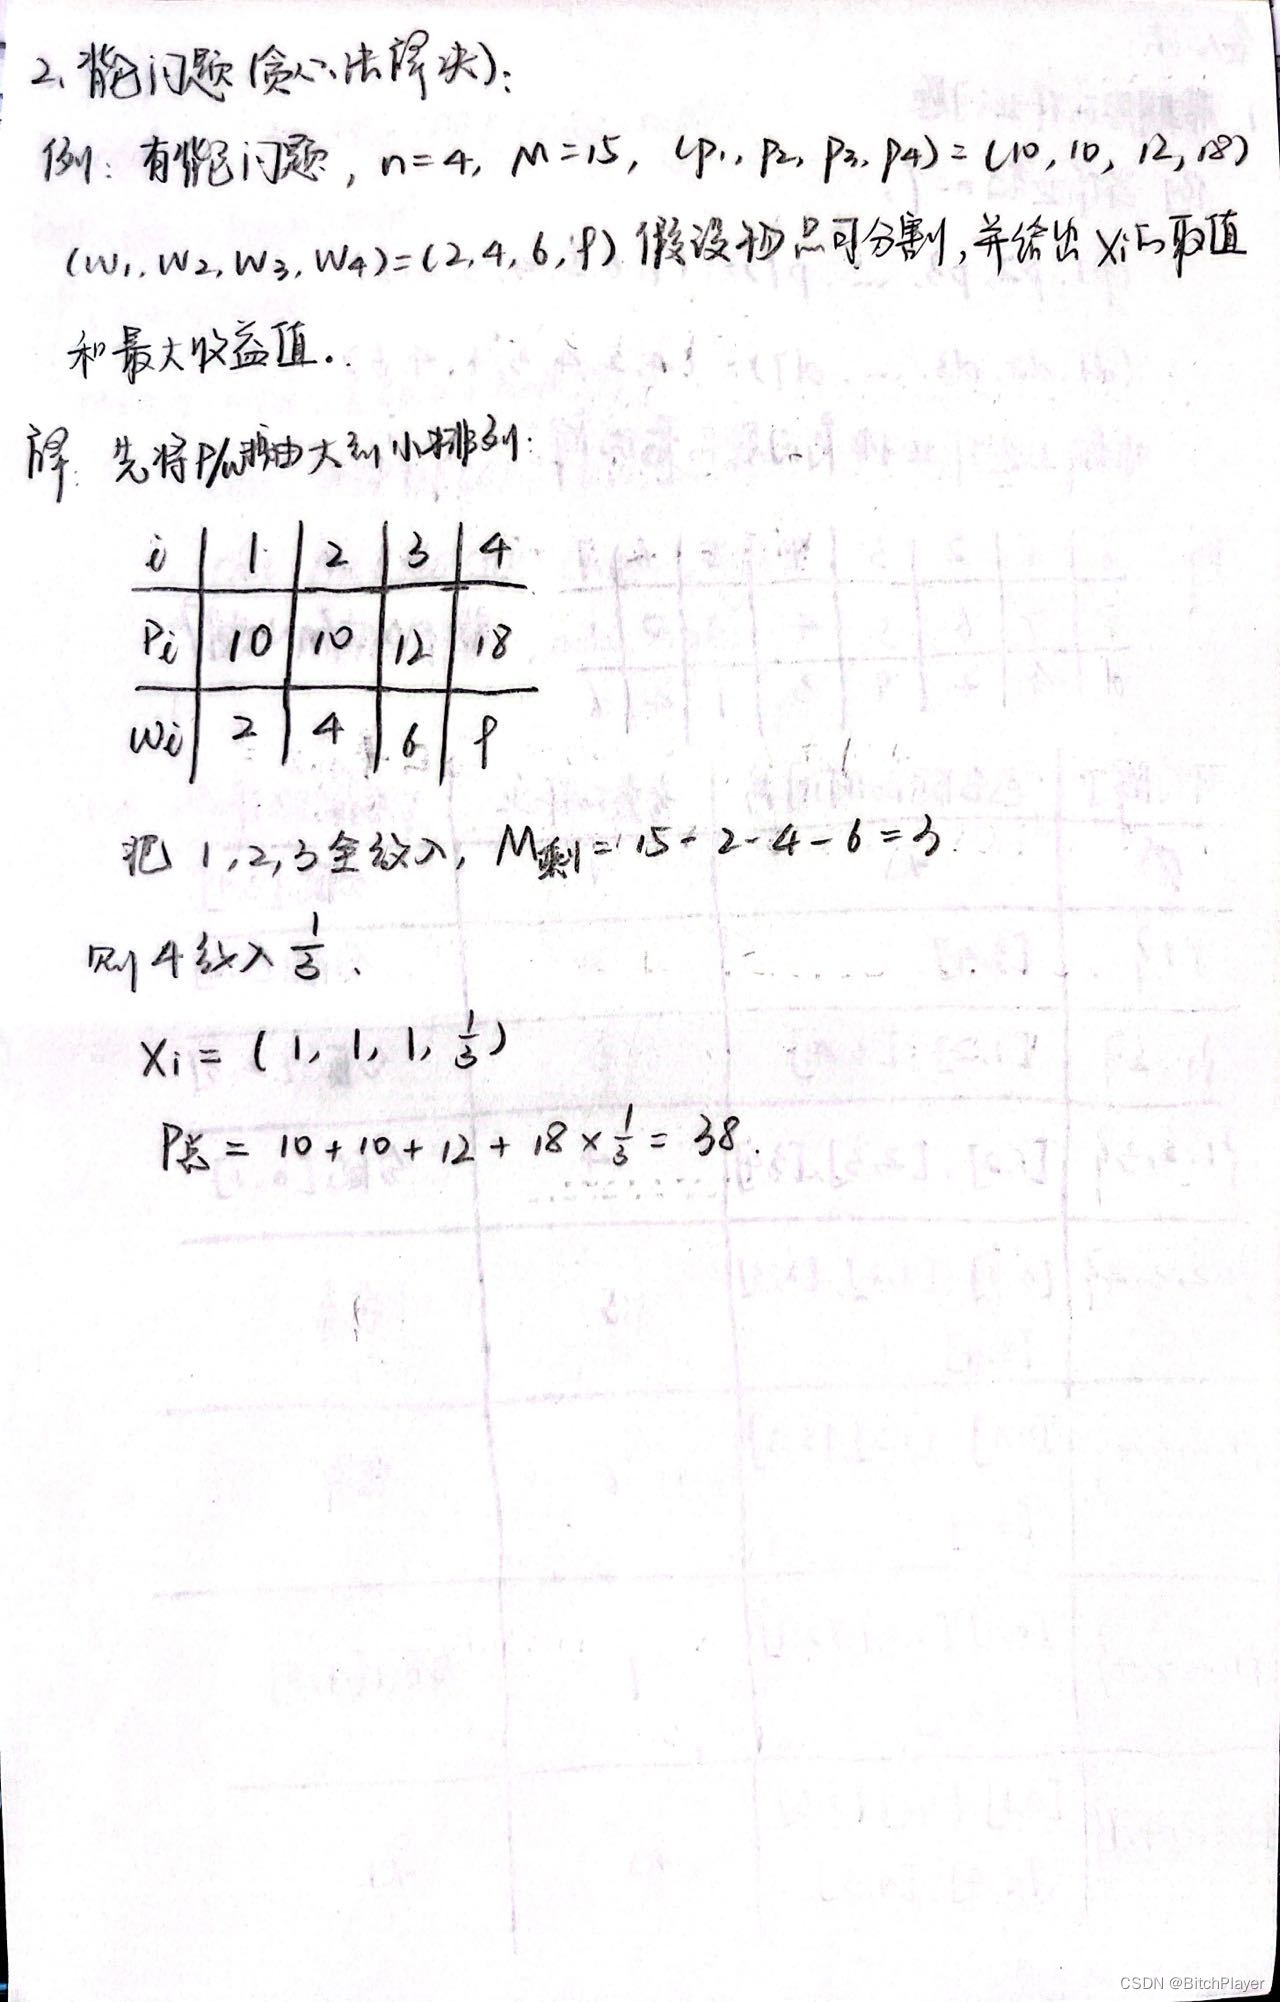 2、背包问题(贪心法解决):
例: 有背包问题, n=4, M=15, (P1, P2, P3, P4)=(10, 10, 12, 18)
(W1, W2, W3, W4)=(2, 4, 6, 9) 假设物品可分割,并给出Xi的取值
和最大收益值.
解: 先将P/W按由大到小排列:
i 1 2 3 4
Pi 10 10 12 18
Wi 2 4 6 9
把 1,2,3全放入, M剩=15-2-4-6=3
则4放入 1/3.
Xi = (1, 1, 1, 1/3)
P总 = 10+10+12+18×1/3=38.
CSDN @BitchPlayer